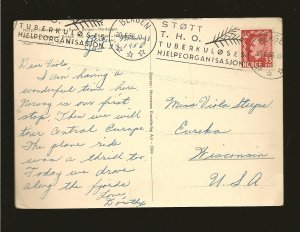 STØTT
T. H. O.
TUBERKULØSES
HJELPEORGANISASJON
BERGEN
STØTT
T. H. O.
TUBERKULØSES
HJELPEORGANISASJON
NORGE 35
Dear Viola,
I am having a
wonderful time here.
Norway is our first
stop. Then we will
tour Central Europe.
The plane ride
was a thrill too.
Today we drove
along the fjords
Love
Dorothy
Miss Viola
Eureka
Wisconsin
U.S.A